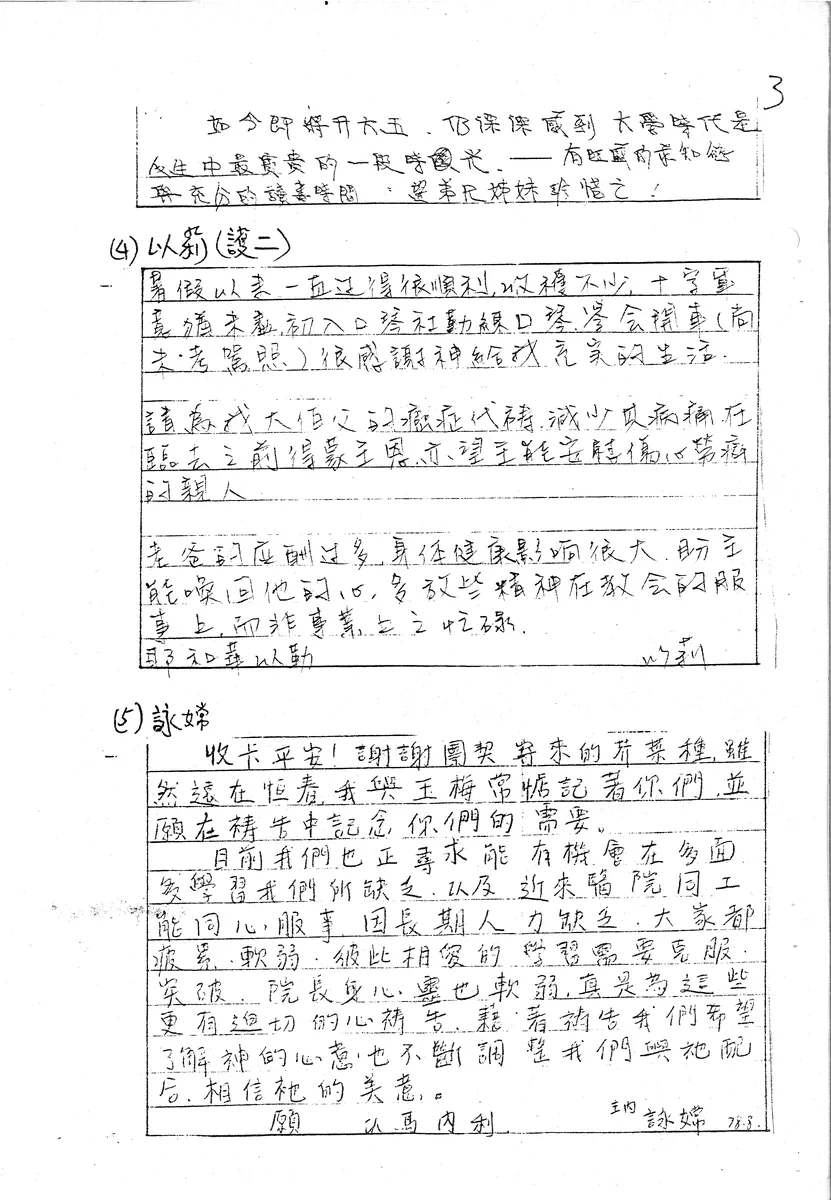 3
如今即將升大五、仍深深感到大學時代是
人生中最寶貴的一段時光、——有旺盛的求知慾
與充分的讀書時間；望弟兄姊妹珍惜之！
(4) 以莉(護二)
暑假以來一直过得很順利，收穫不少，十字
猶未，初入口琴社勤練口琴、学会開車(尚
未考駕照)很感謝神給我充实的生活.
請為我大伯父的癌症代禱，減少其病痛在
臨去之前得蒙主恩，亦望主能安慰傷心勞瘁
的親人
老爸的应酬过多，身体健康影响很大，盼主
能喚回他的心，多放些精神在教会的服
事上，而非事業上之忙碌.
耶和華以勒 以莉
(5) 詠嫦
收卡平安！謝謝團契寄來的芥菜種，雖
然遠在恒春，我與玉梅常惦記著你們，並
願在禱告中記念你們的需要。
目前我們也正尋求能有機會在多面
學習我們所缺乏，以及近來醫院同工
能同心服事，因長期人力缺乏，大家都
疲累、軟弱，彼此相愛的學習需要克服.
突破，院長身心靈也軟弱，真是為這些
更有迫切的心禱告，藉著禱告我們希望
了解神的心意，也不斷調整我們與祂配
合，相信祂的美意。
願 以馬內利 主內 詠嫦 78.8.